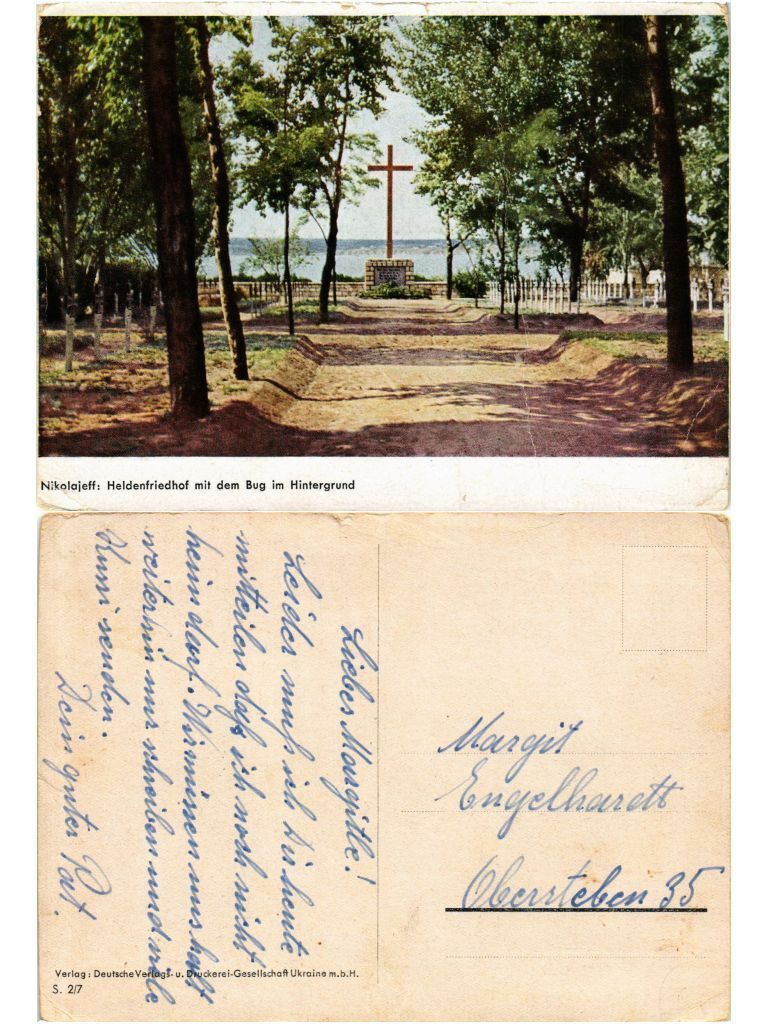 Nikolajeff: Heldenfriedhof mit dem Bug im Hintergrund
Liebes Margitle!
Leider muß ich Dir heute
mitteilen daß ich noch nicht
heim darf. Wir müssen uns halt
weiterhin nur schreiben und viele
Kussi senden.
Dein guter Pat.
Margit
Engelhardt
Obersteben 35
Verlag: Deutsche Verlags- u. Druckerei-Gesellschaft Ukraine m.b.H.
S. 2/7